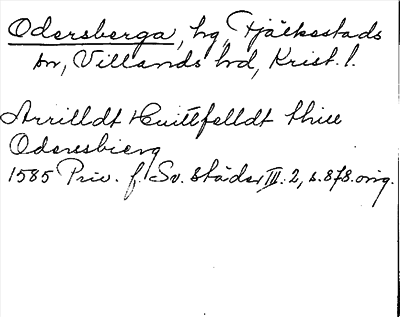 Odersberga, hg, Fjälkestads
sn, Villands hd, Krist. l.
Arrilldt Huittfelldt thill
Oderesbierg
1585 Priv. f. Sv. städer III: 2, s. 878. orig.